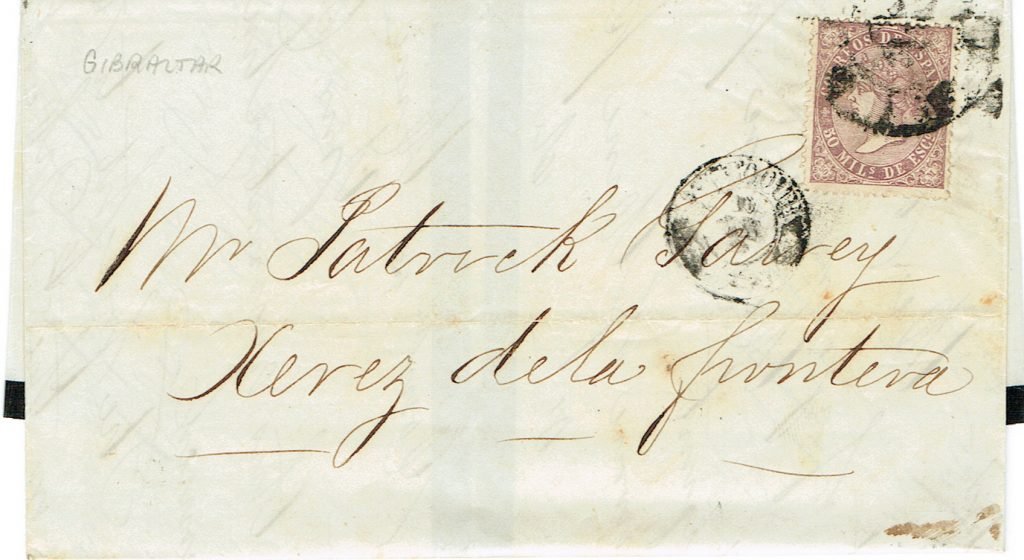 GIBRALTAR
CORREOS DE ESPAÑA
50 MILS DE ESCO
Mr Patrick
Xerez de la frontera